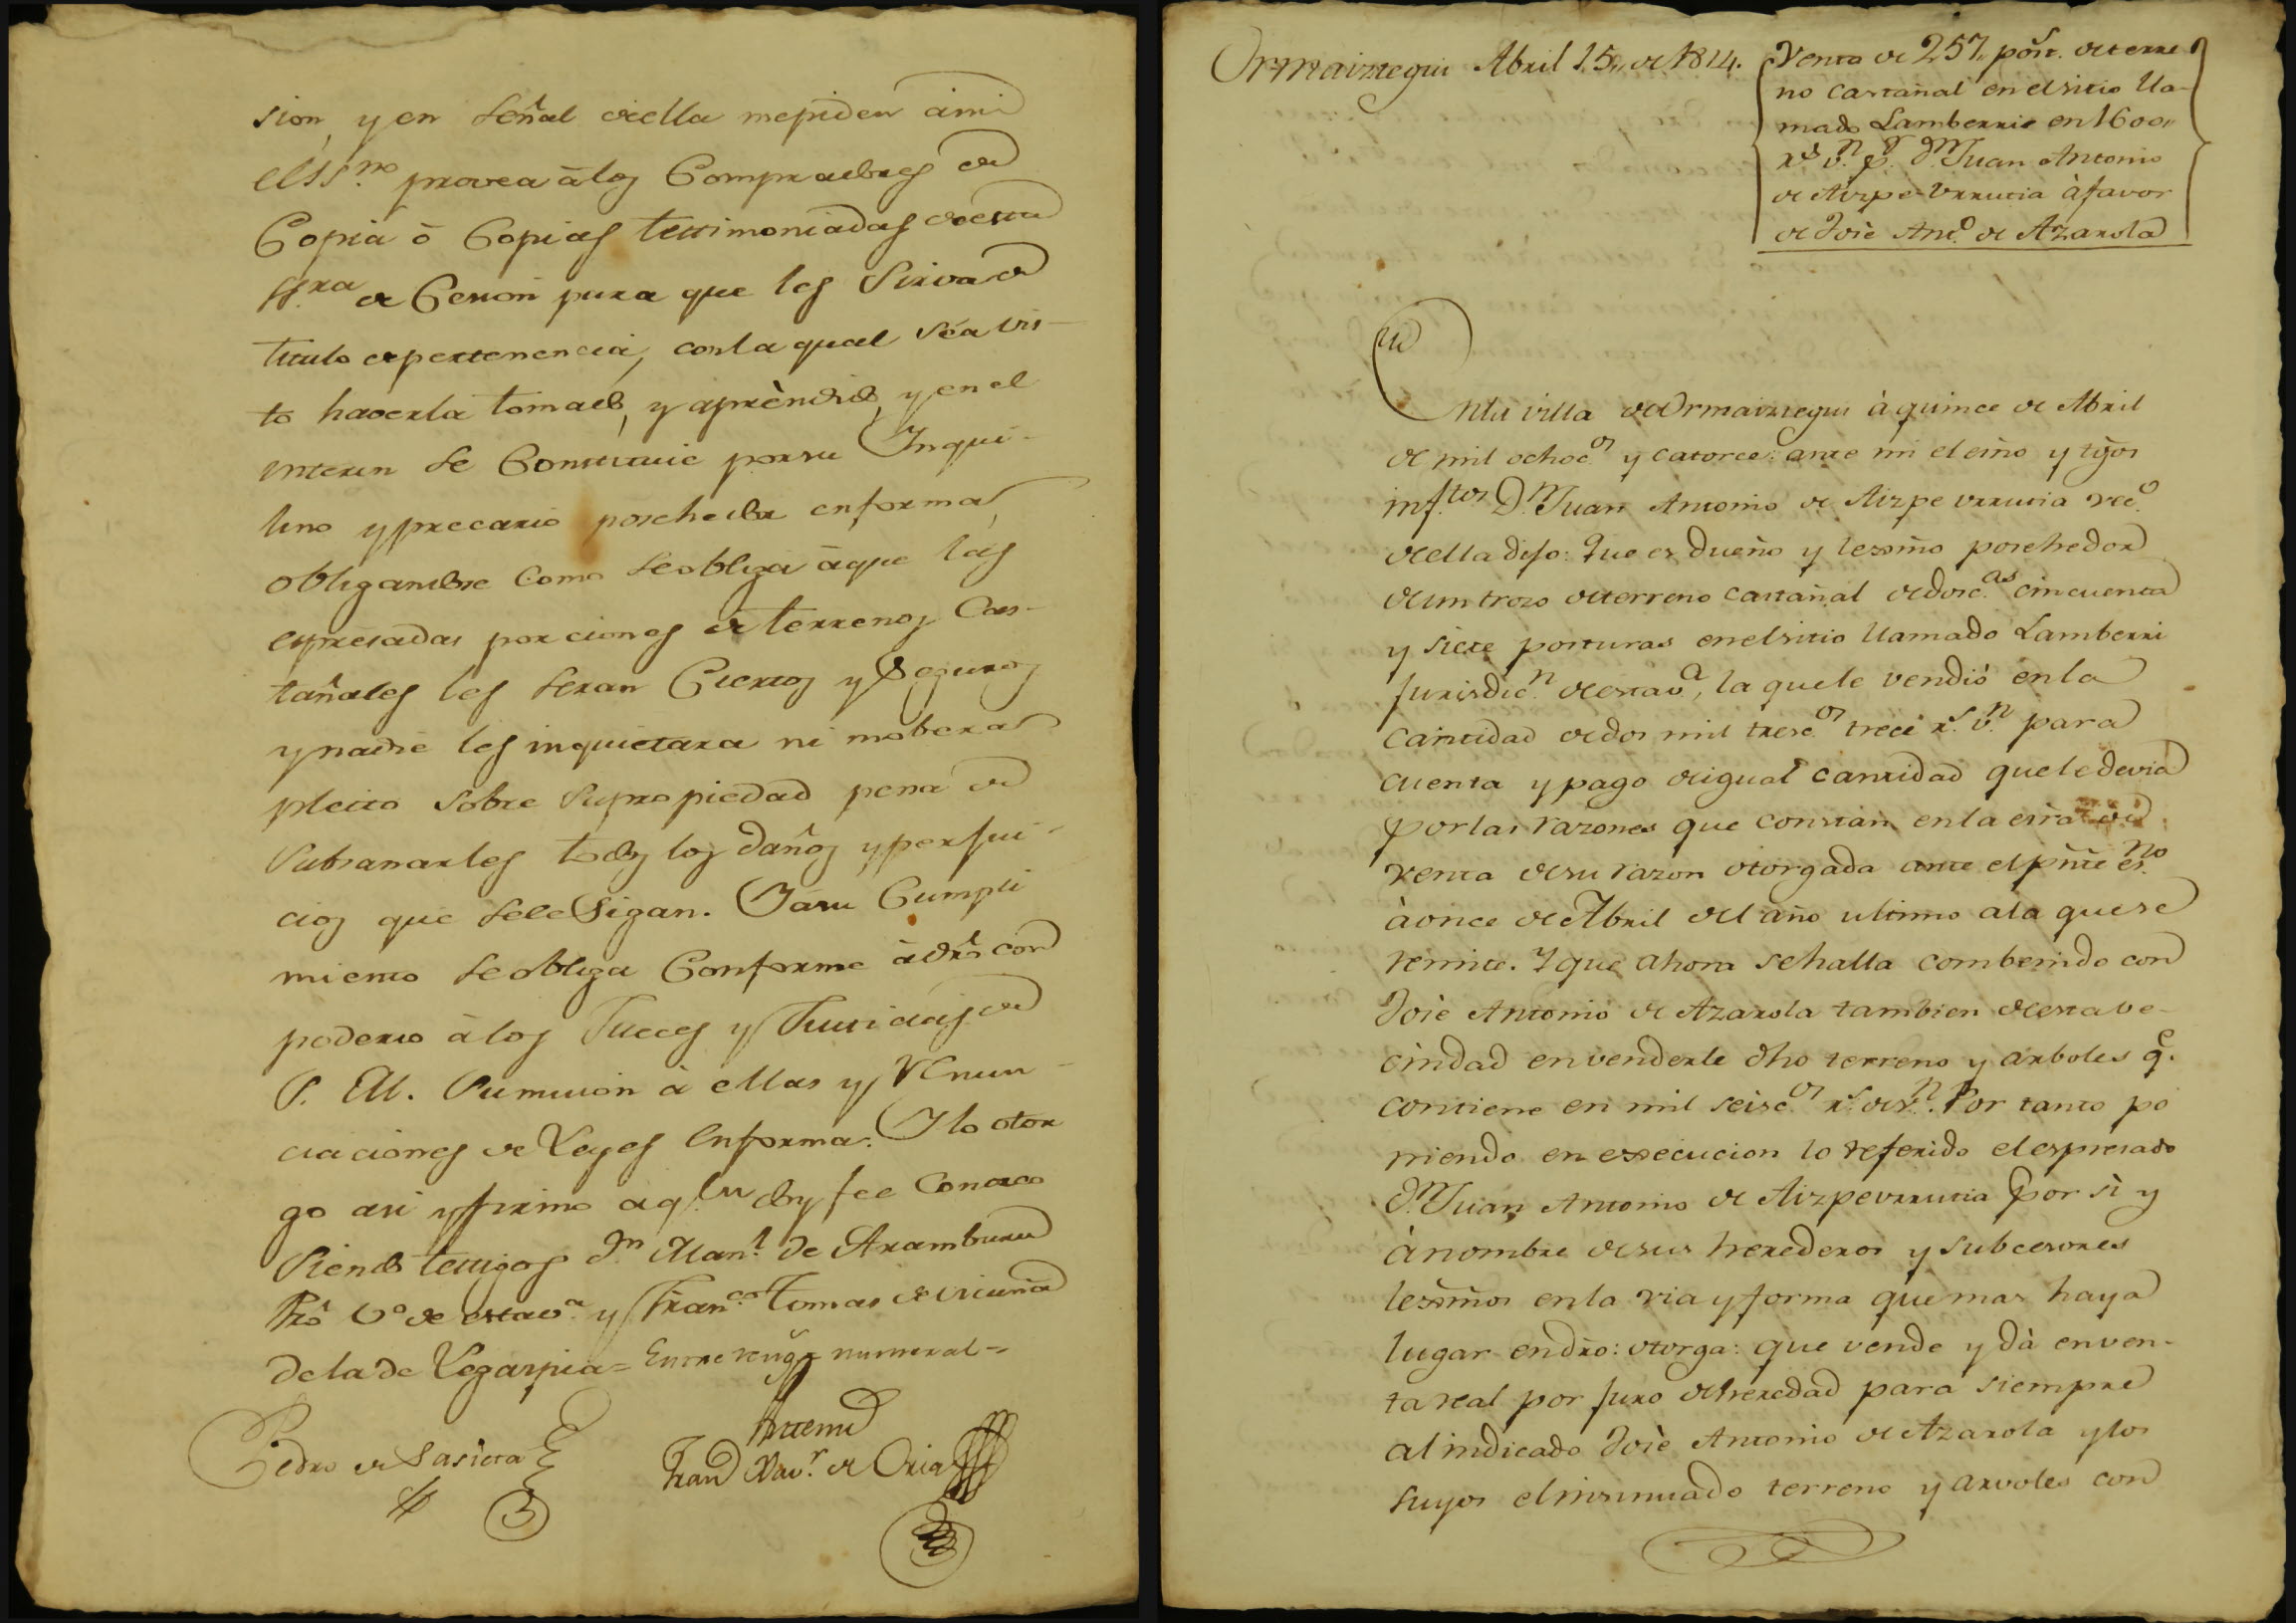 sion, y en señal de ella me piden á mi
el Ess.no provea á los Compradores de
Copia ó Copias testimoniadas de esta
Ess.ra de Cesion para que les Sirva de
titulo de pertenencia, con la qual séa vis-
to haverla tomado, y aprèndido, y en el
interin se Constituie por su Inqui-
lino y precario posehedor en forma,
obligandose Como se obliga áque las
espresadas porciones de terrenos Cas-
tañales les seran Ciertos y Seguros
y nadie les inquietara ni mobera
pleito sobre su propiedad pena de
Subsanarles todos los daños y perjui-
cios que se le Sigan. Y á su Cumpli
miento se obliga Conforme á dro con
poderio á los Jueces y Justicias de
S. M. Sumision à ellas y Renun-
ciaciones de Leyes en forma. Y lo otor
go asi y firmo a q.n doy fee Conozco
Siendo testigos Dn Man.l de Aramburu
Pro V.o de esta v.a y Fran.co Tomas de Vicuña
de la de Legazpia = Entre reng.s numeral =
Pedro de Sasieta
Ante mi
Fran.co Xav.r de Oria
Ormaiztegui Abril 15,, de 1814.
Venta de 257, post.s de terre
no castañal en el sitio lla-
mado Lamberri en 1600,,
r.s v.n p.r D.n Juan Antonio
de Aizpe-Urrutia à favor
de José Ant.o de Azarola
En la villa de Ormaiztegui à quince de Abril
de mil ochoc.os y catorce: ante mi el esño y tg̃os
inf.tos D.n Juan Antonio de Aizpeurrutia vec.o
de ella dijo: Que es dueño y lexmõ posehedor
de un trozo de terreno castañal de dosc.as cincuenta
y siete posturas en el sitio llamado Lamberri
jurisdic.n de esta v.a, la que le vendió en la
cantidad de dos mil tresc.os trece r.s v.n para
cuenta y pago de igual cantidad que le devia
por las razones que constan en la esrã de
venta de su razon otorgada ante el pñte es.no
à once de Abril del año ultimo a la que se
remite. Y que ahora se halla combenido con
José Antonio de Azarola tambien de esta ve-
cindad en venderle dho terreno y arboles q.e
contiene en mil seisc.os r.s de v.n. Por tanto po
niendo en execucion lo referido el espresado
D.n Juan Antonio de Aizpeurrutia por sì y
à nombre de sus herederos y subcesores
lexmõs en la via y forma que mas haya
lugar en dro: otorga: que vende y dà en ven-
ta real por juro de heredad para siempre
al indicado José Antonio de Azarola y los
suyos el insinuado terreno y arvoles con